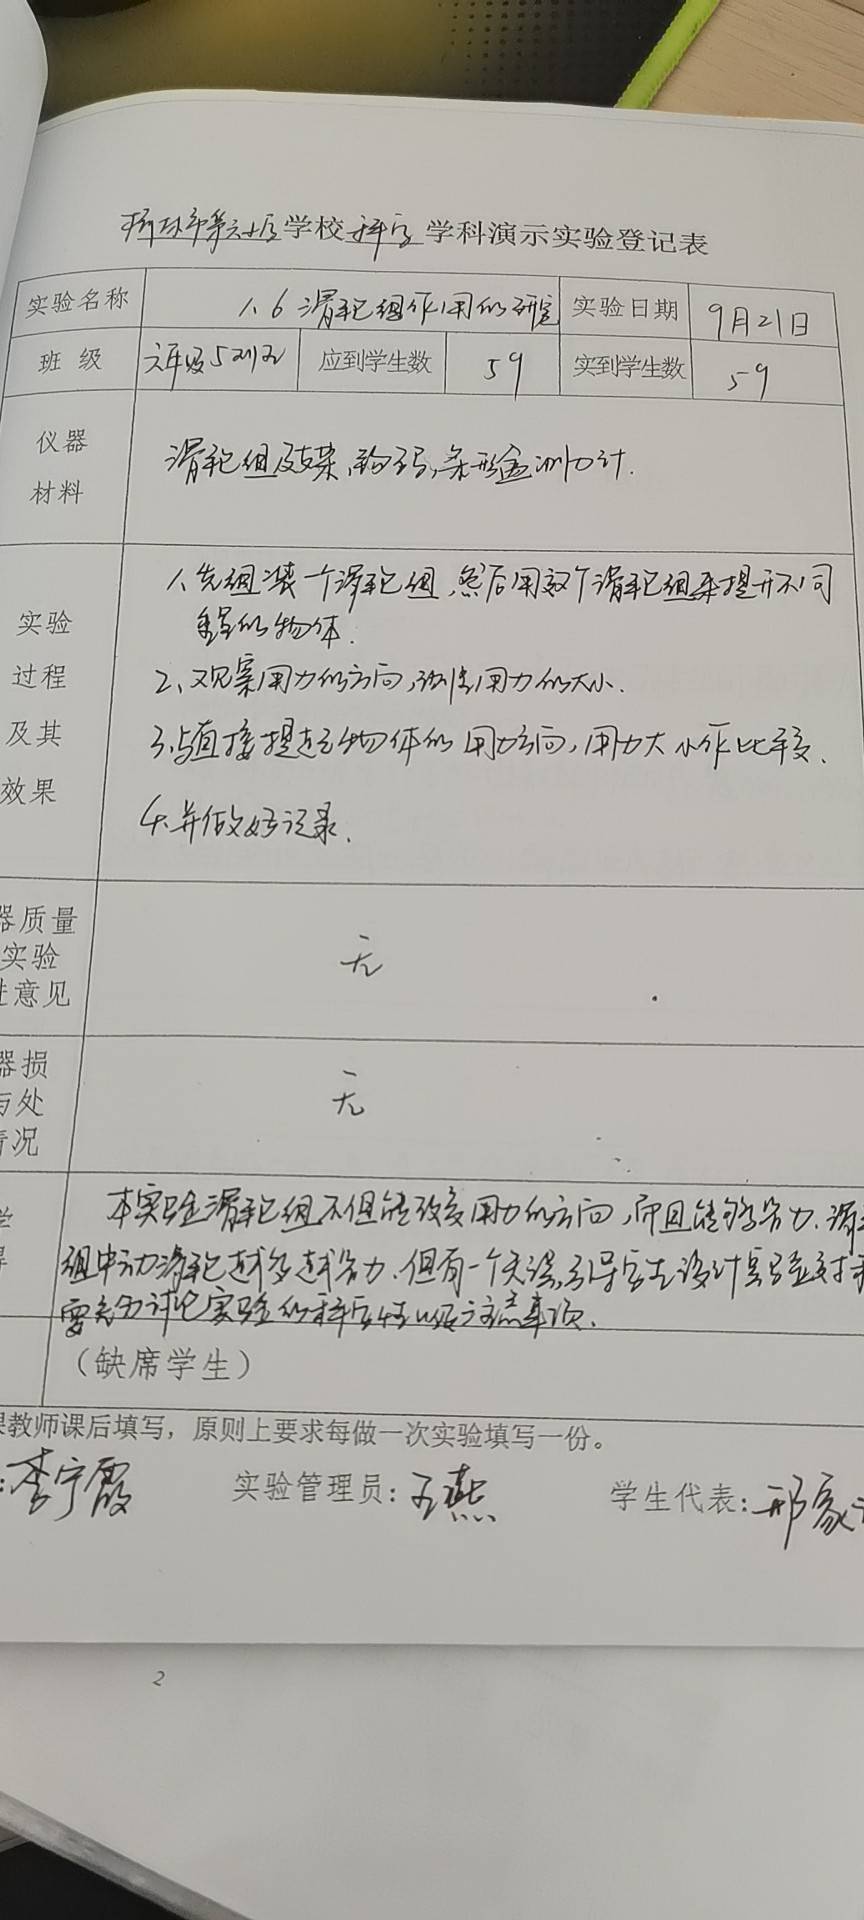 榆林市第六小学学校科学学科演示实验登记表
实验名称 1.6 滑轮组作用的研究 实验日期 9月21日
班 级 六年级5班 应到学生数 59 实到学生数 59
仪器
材料
滑轮组及支架、钩码、条形盒测力计.
实验
过程
及其
效果
1、先组装一个滑轮组,然后用这个滑轮组来提升不同
重量的物体.
2、观察用力的方向,估计用力的大小.
3、与直接提起物体的用力方向,用力大小作比较.
4、并做好记录.
器质量
实验
进意见
无
器损
与处
情况
无
学
得
本实验滑轮组不但能改变用力的方向,而且能够省力.滑
组中动滑轮越多越省力.但有一个失误,引导学生设计实验时
要充分讨论实验的科学性以及注意事项.
(缺席学生)
课教师课后填写,原则上要求每做一次实验填写一份。
:李宁霞 实验管理员:王燕 学生代表:邢家
2